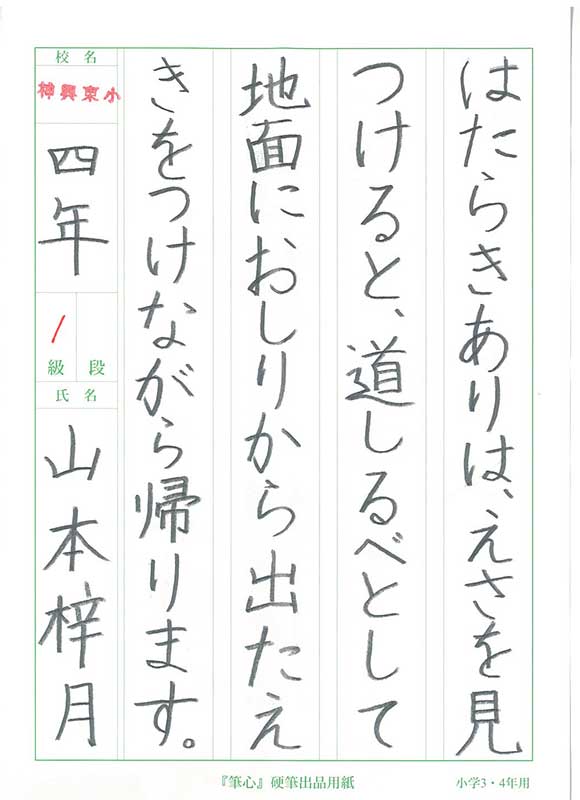 はたらきありは、えさを見
つけると、道しるべとして
地面におしりから出たえ
きをつけながら帰ります。
校名
神興東小
四年
1
級 段
氏名
山本梓月
『筆心』硬筆出品用紙
小学3・4年用